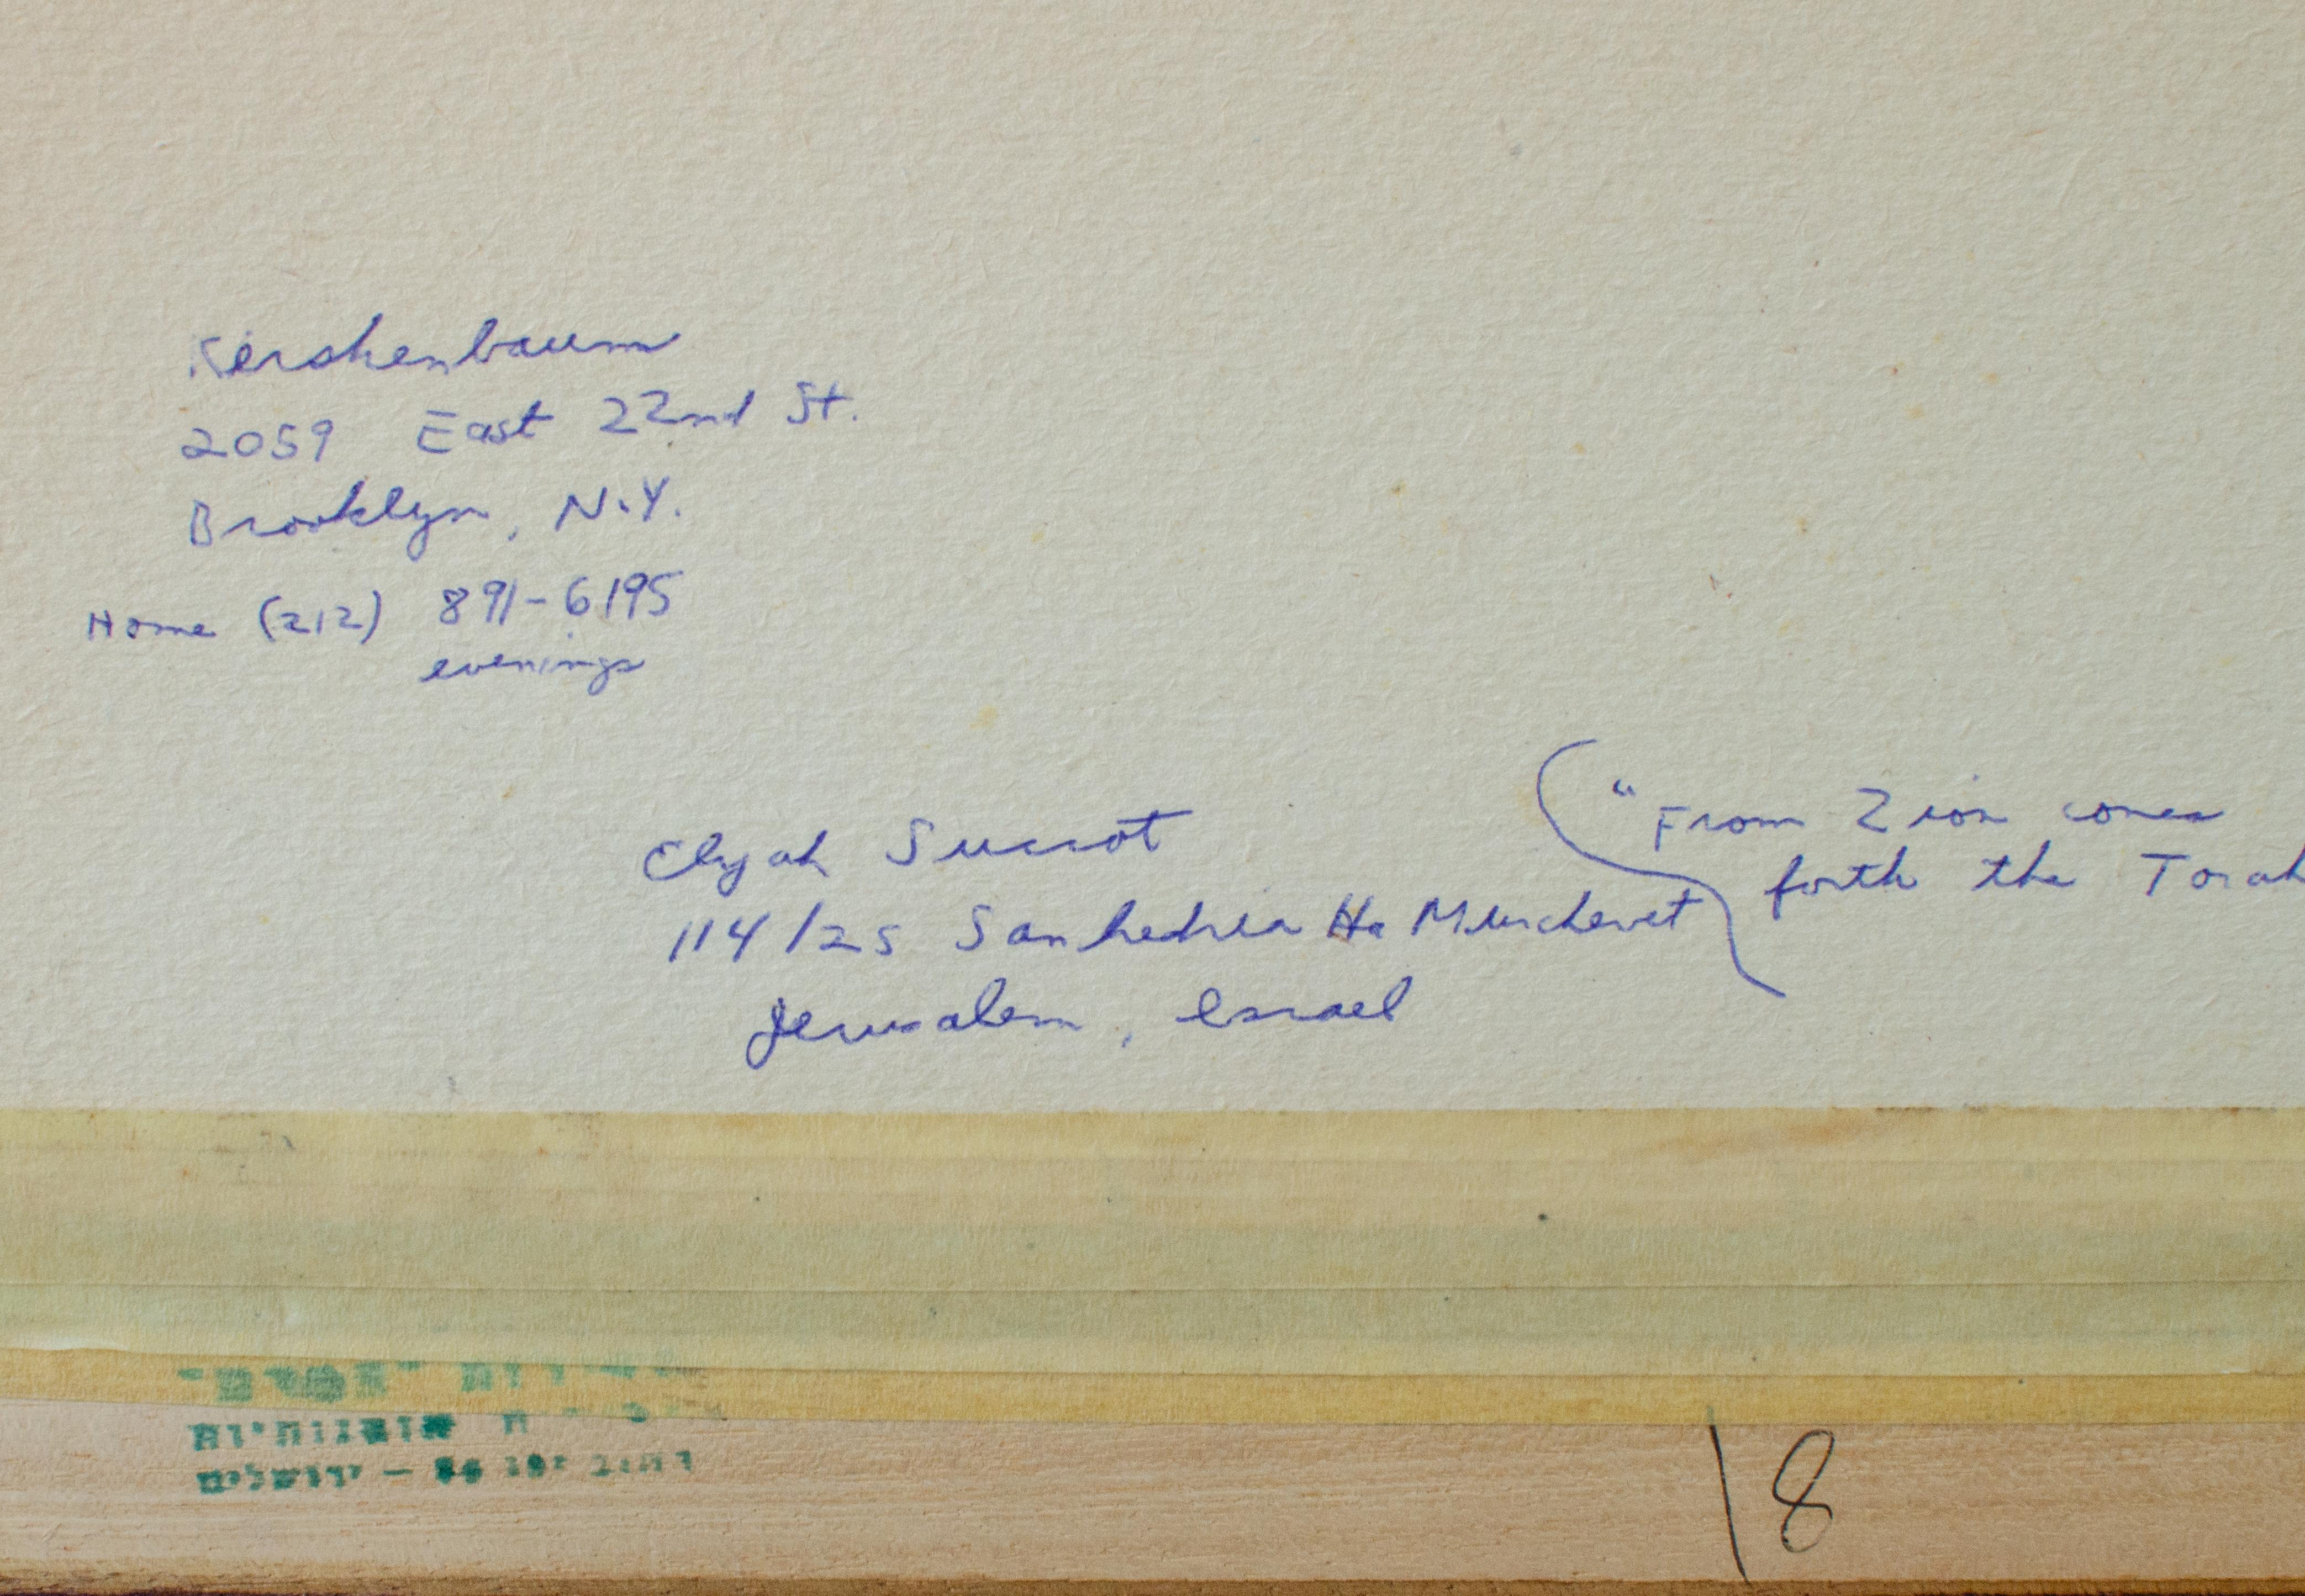 Kershenbaum
2059 East 22nd St.
Brooklyn, N.Y.
Home (212) 891-6195
evenings
Elyah Succot
114/25 Sanhedria Ha Murchevet
Jerusalem, Israel
"From Zion comes
forth the Torah
ירושלים
18